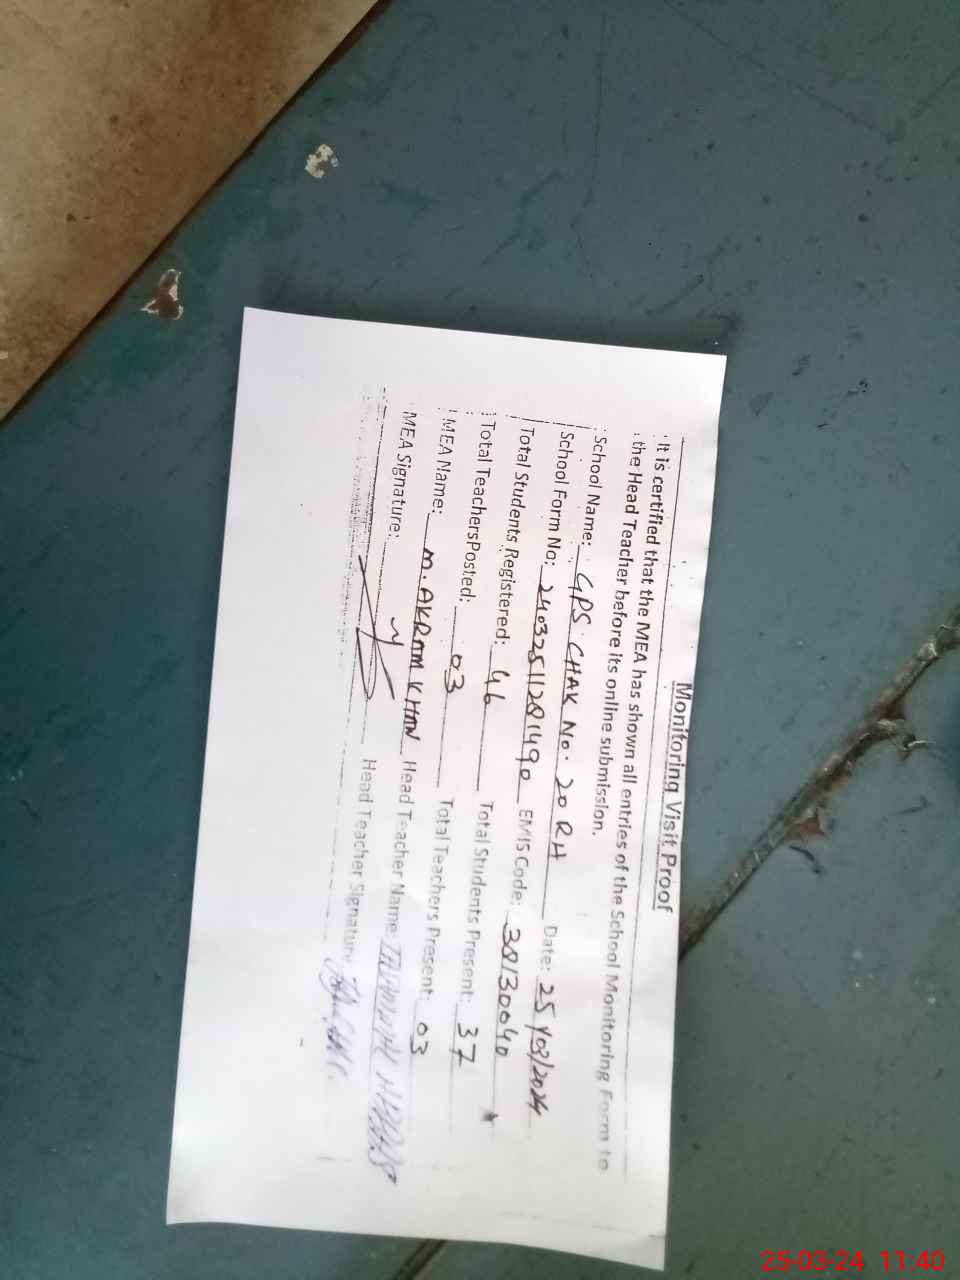 Monitoring Visit Proof
It is certified that the MEA has shown all entries of the School Monitoring Form to
the Head Teacher before its online submission.
School Name: GPS CHAK No. 20 RH Date: 25/03/2024
School Form No: 24032511281490 EMIS Code: 38130040
Total Students Registered: 46 Total Students Present: 37
Total TeachersPosted: 03 Total Teachers Present: 03
MEA Name: M. AKRAM KHAN Head Teacher Name:
MEA Signature: Head Teacher Signature:
25-03-24 11:40